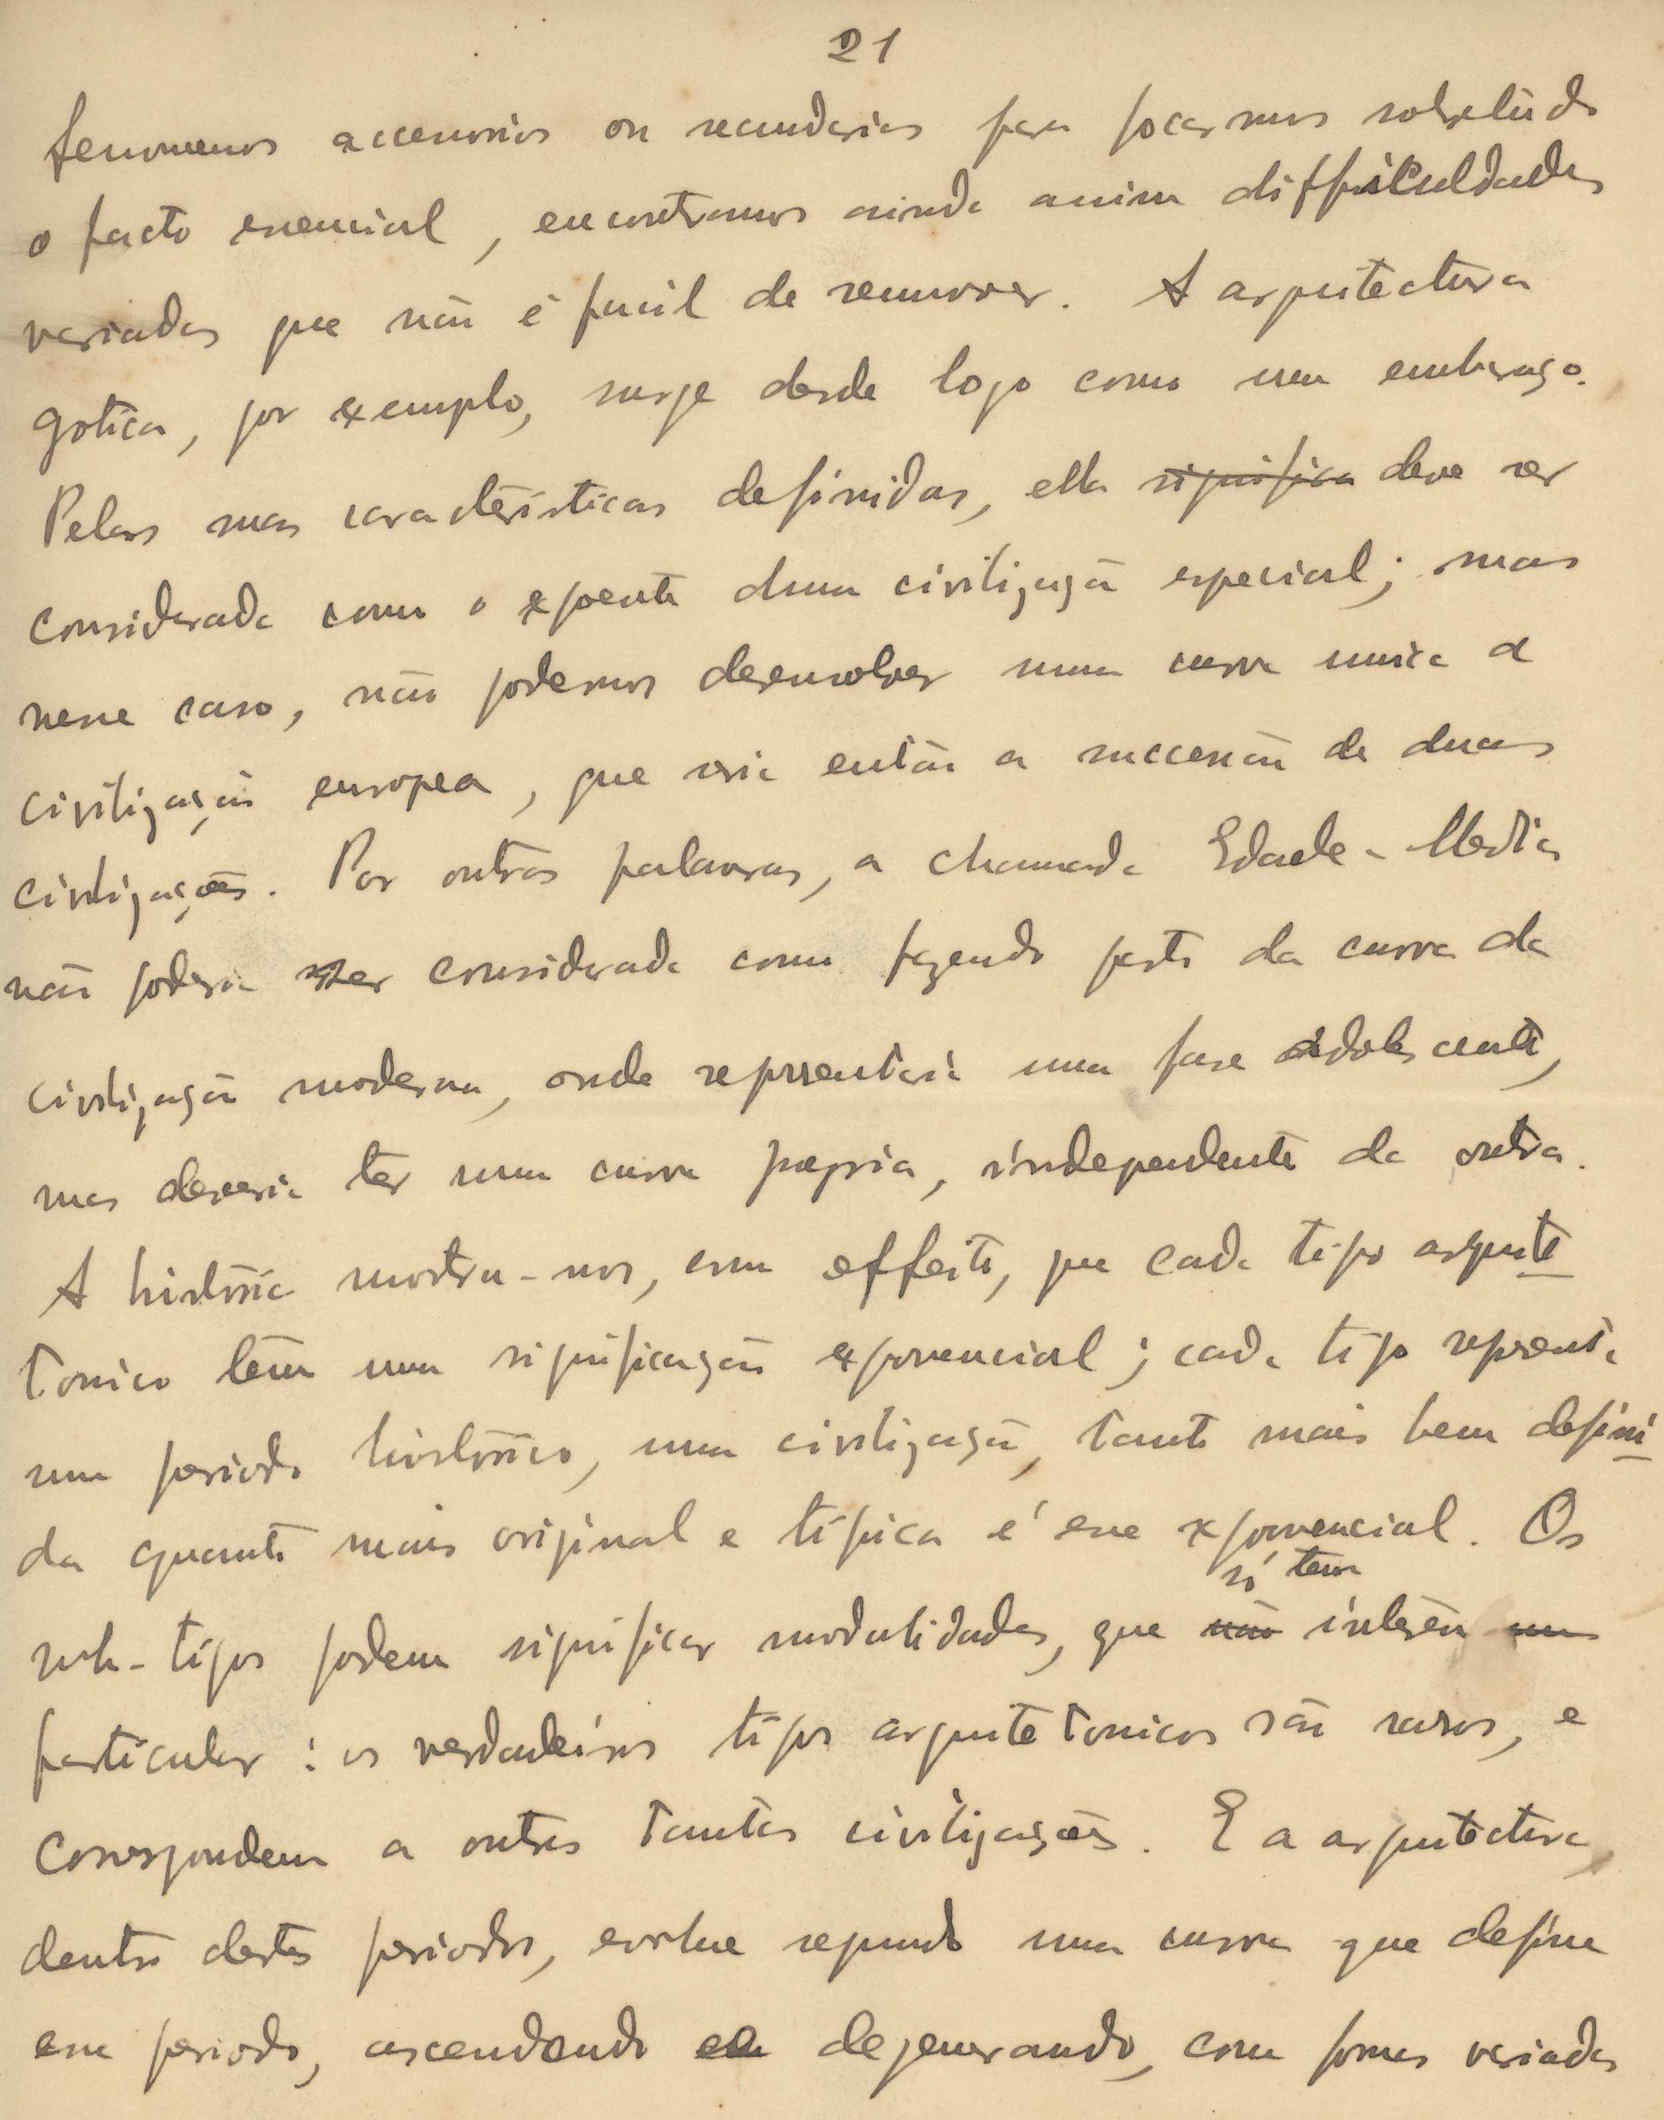 21
fenomenos accessorios ou secundarios para focarmos sobretudo
o facto essencial, encontramos ainda assim difficuldades
variadas que não é facil de remover. A arquitectura
gotica, por exemplo, surge desde logo como um embaraço.
Pelas suas caracteristicas definidas, ella significa deve ser
considerada como o expoente duma civilização especial; mas
nesse caso, não podemos desenvolver numa curva unica a
civilização europea, que seria então a successão de duas
civilizações. Por outras palavras, a chamada Edade-Media
não poderia ser considerada como fazendo parte da curva da
civilização moderna, onde representaria uma fase adolescente,
mas deveria ter uma curva propria, independente da outra.
A historia mostra-nos, com effeito, que cada tipo arquite
tonico tem uma significação exponencial; cada tipo representa
um periodo historico, uma civilização, tanto mais bem defini
da quanto mais original e tipica é esse exponencial. Os
só tem
sub-tipos podem significar modalidades, que não interesse um
particular: os verdadeiros tipos arquitetonicos são raros, e
correspondem a outras tantas civilizações. E a arquitectura,
dentro destes periodos, evolue segundo uma curva que define
esse periodo, ascendendo ou degenerando, com formas variadas